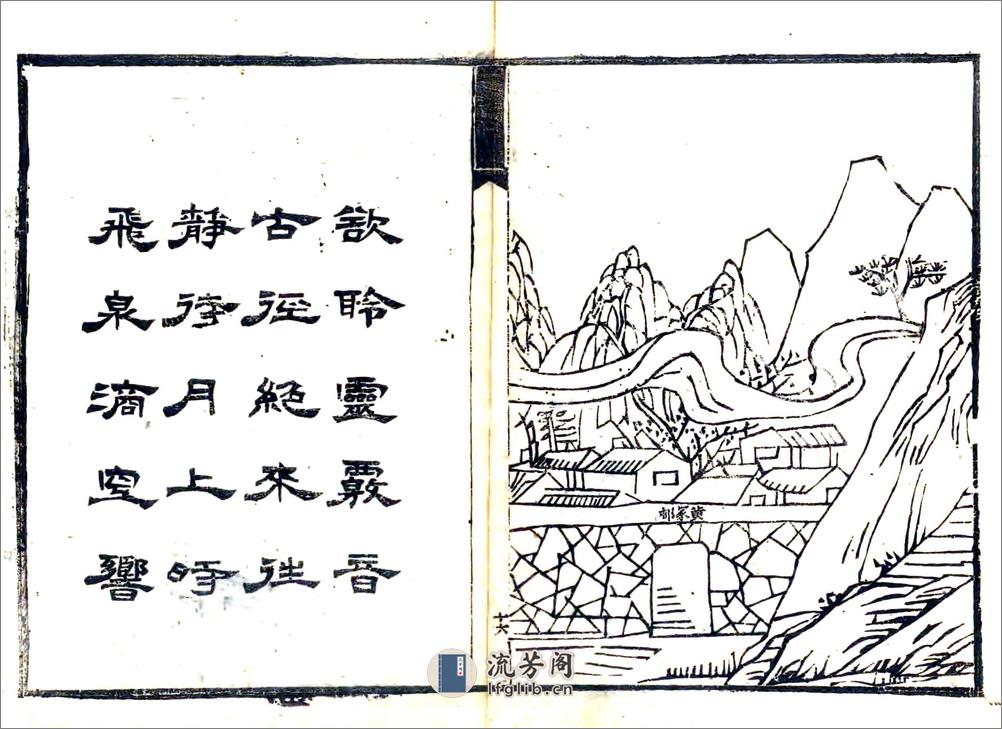 黃家
十六
欲聆靈覈音
古徑絕來往
靜待月上時
飛泉滴空響
流芳阁
lfglib.cn